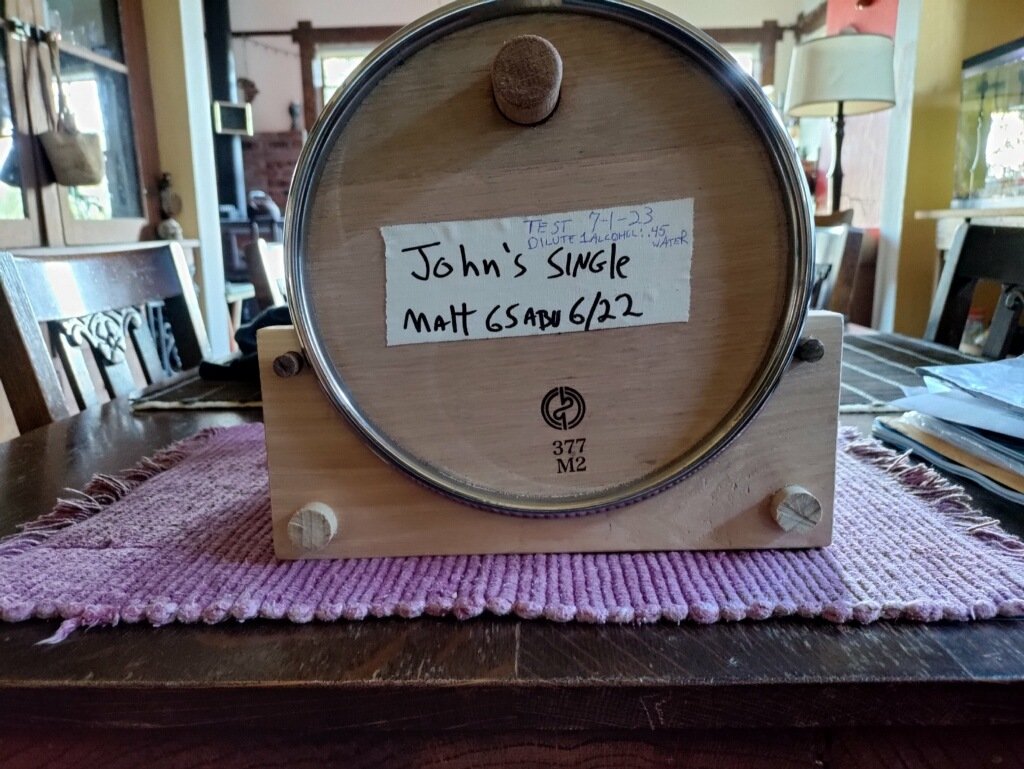 TEST 7-1-23
DILUTE 1 ALCOHOL: .45
WATER
John's SINGle
MAlt 65ABV 6/22
377
M2